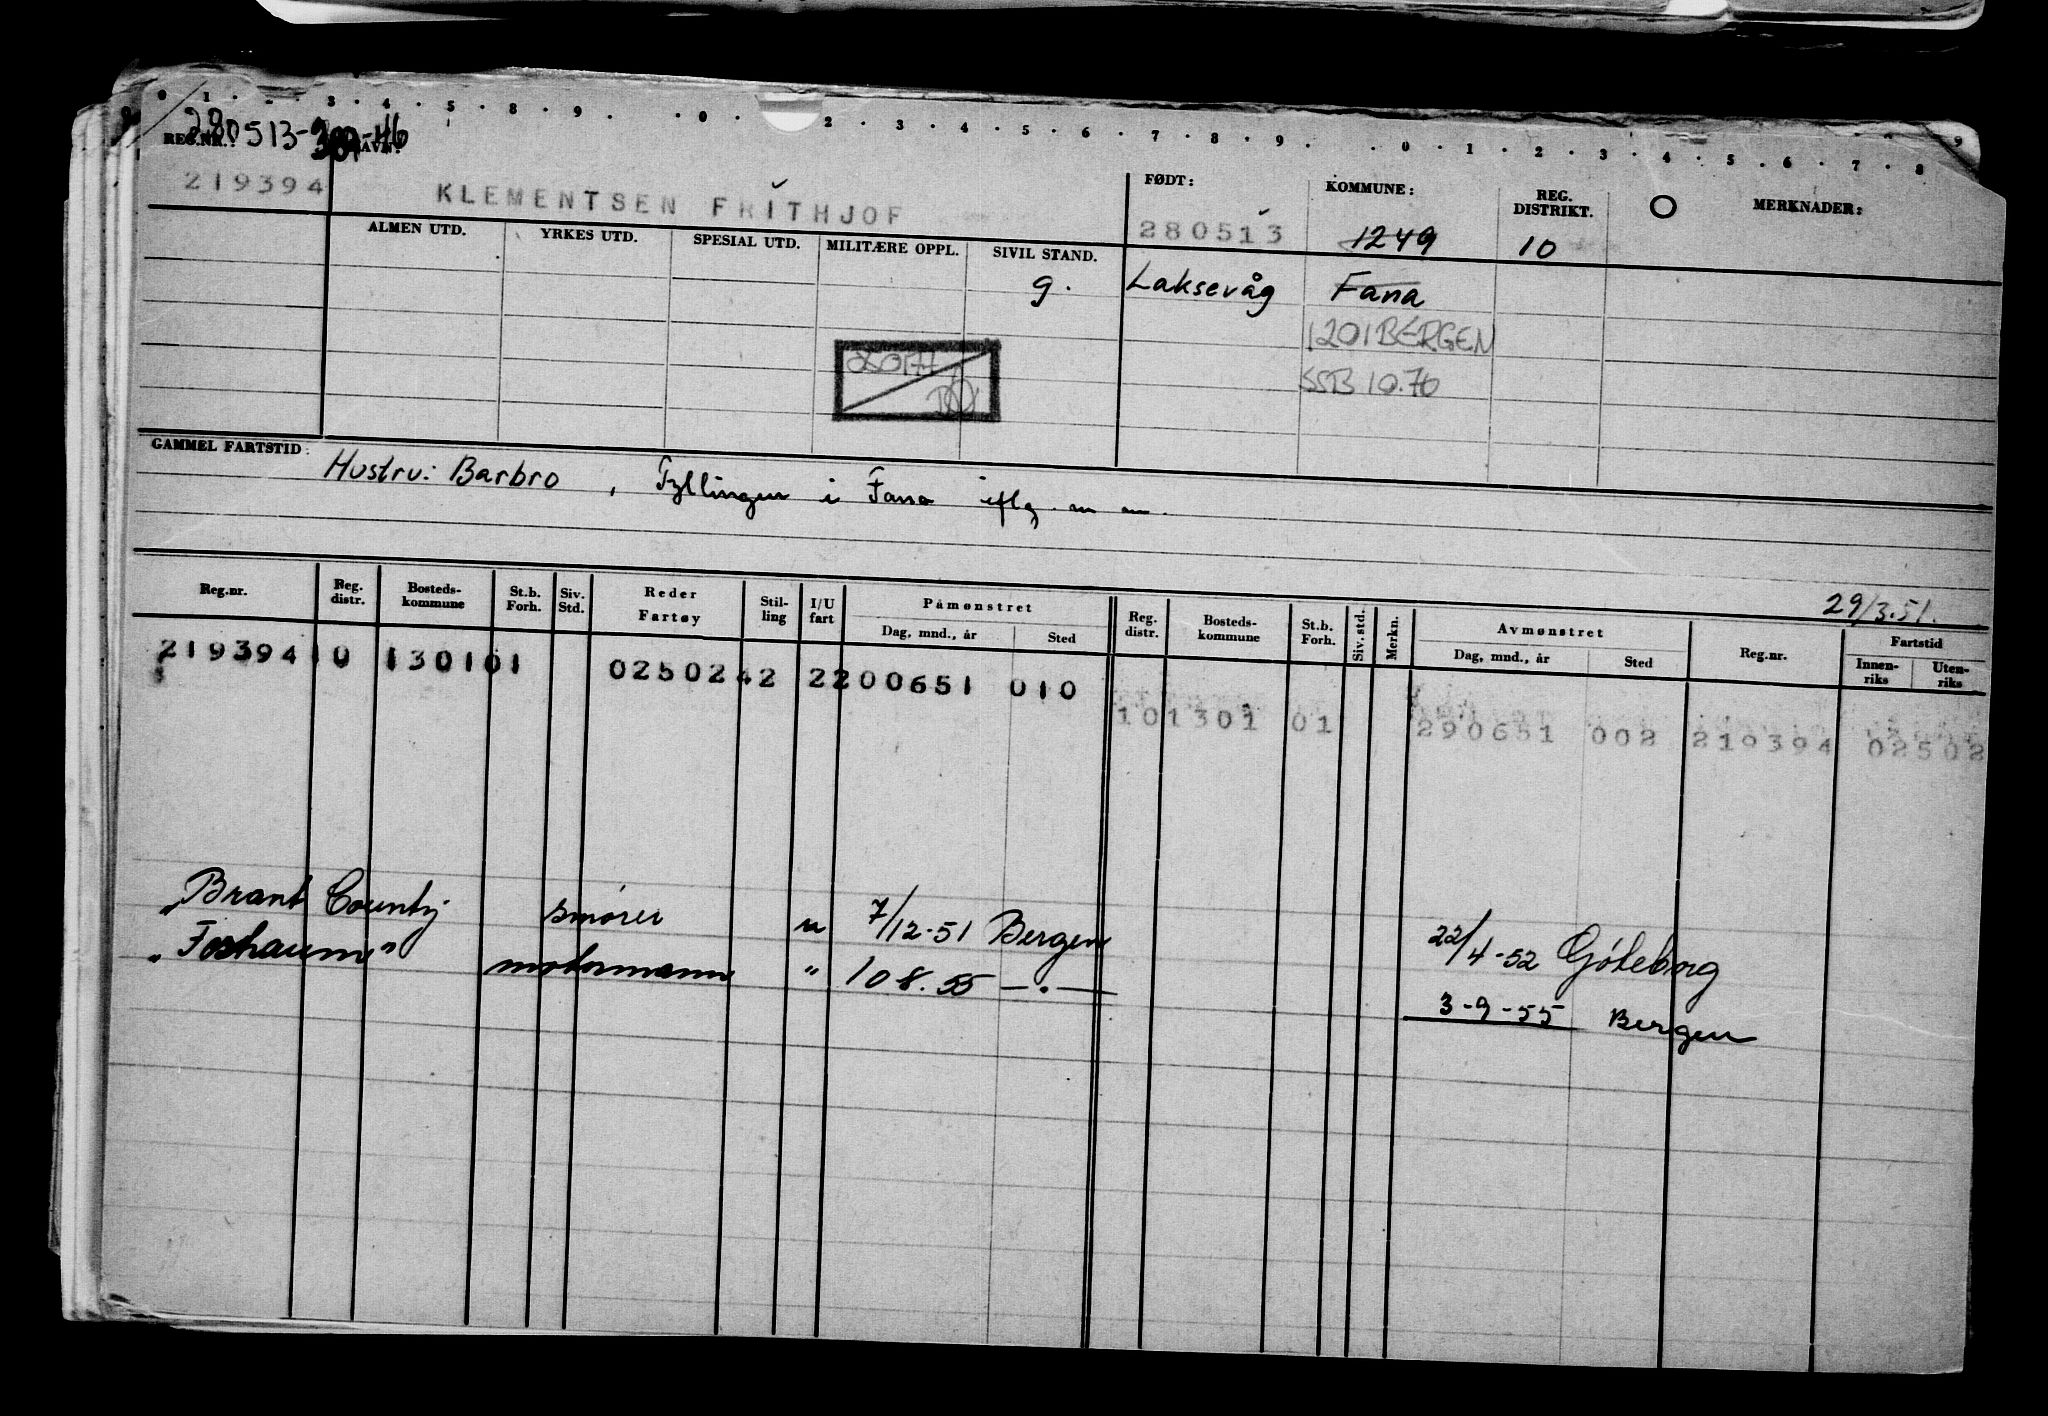 0 1 3 4 5 8 9 0 2 3 4 5 6 7 8 9 0 1 2 3 4 5 6 7 8 9
280513-
REG.NR.: NAVN:
219394 KLEMENTSEN FRITHJOF
FØDT: KOMMUNE: REG. DISTRIKT. MERKNADER:
280513 1249 10
ALMEN UTD. YRKES UTD. SPESIAL UTD. MILITÆRE OPPL. SIVIL STAND.
g. Laksevåg Fana
1201 BERGEN
SSB 10.76
GAMMEL FARTSTID:
Hustru: Barbro, Fyllingen i Fana iflg. m m.
29/3.51.
Reg.nr. Reg. distr. Bosteds-kommune St.b. Forh. Siv. Std. Reder Fartøy Stil-ling I/U fart Påmønstret Dag, mnd., år Sted Reg. distr. Bosteds-kommune St.b. Forh. Siv. std. Merkn. Avmønstret Dag, mnd., år Sted Reg.nr. Fartstid Innen-riks Uten-riks
219394 10 1301 01 0250242 2 200651 010
10 1301 01 290651 002 219394 02502
„Brant County smører u 7/12-51 Bergen 22/4-52 Göteborg
„ " motormann " 10 8.55 —.— 3-9-55 Bergen